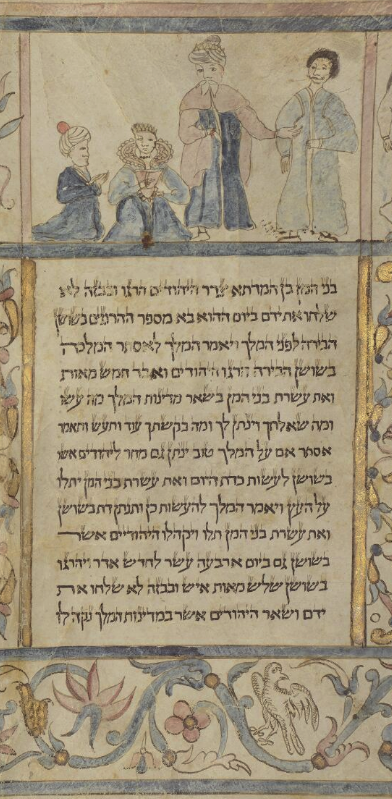 בני המן בן המדתא צרר היהודים הרגו ובבזה לא
שלחו את ידם ביום ההוא בא מספר ההרוגים בשושן
הבירה לפני המלך ויאמר המלך לאסתר המלכה
בשושן הבירה הרגו היהודים ואבד חמש מאות
ואת עשרת בני המן בשאר מדינות המלך מה עשו
ומה שאלתך וינתן לך ומה בקשתך עוד ותעש ותאמר
אסתר אם על המלך טוב ינתן גם מחר ליהודים אשר
בשושן לעשות כדת היום ואת עשרת בני המן יתלו
על העץ ויאמר המלך להעשות כן ותנתן דת בשושן
ואת עשרת בני המן תלו ויקהלו היהודיים אשר
בשושן גם ביום ארבעה עשר לחדש אדר ויהרגו
בשושן שליש מאות איש ובבזה לא שלחו את
ידם ושאר היהודים אשר במדינות המלך נקהלו